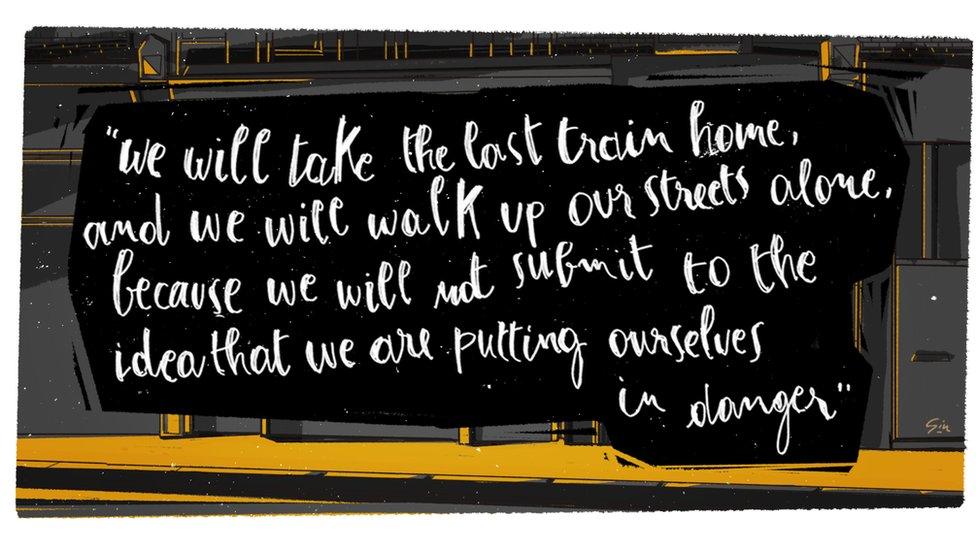 "we will take the last train home,
and we will walk up our streets alone,
because we will not submit to the
idea that we are putting ourselves
in danger"
Sin